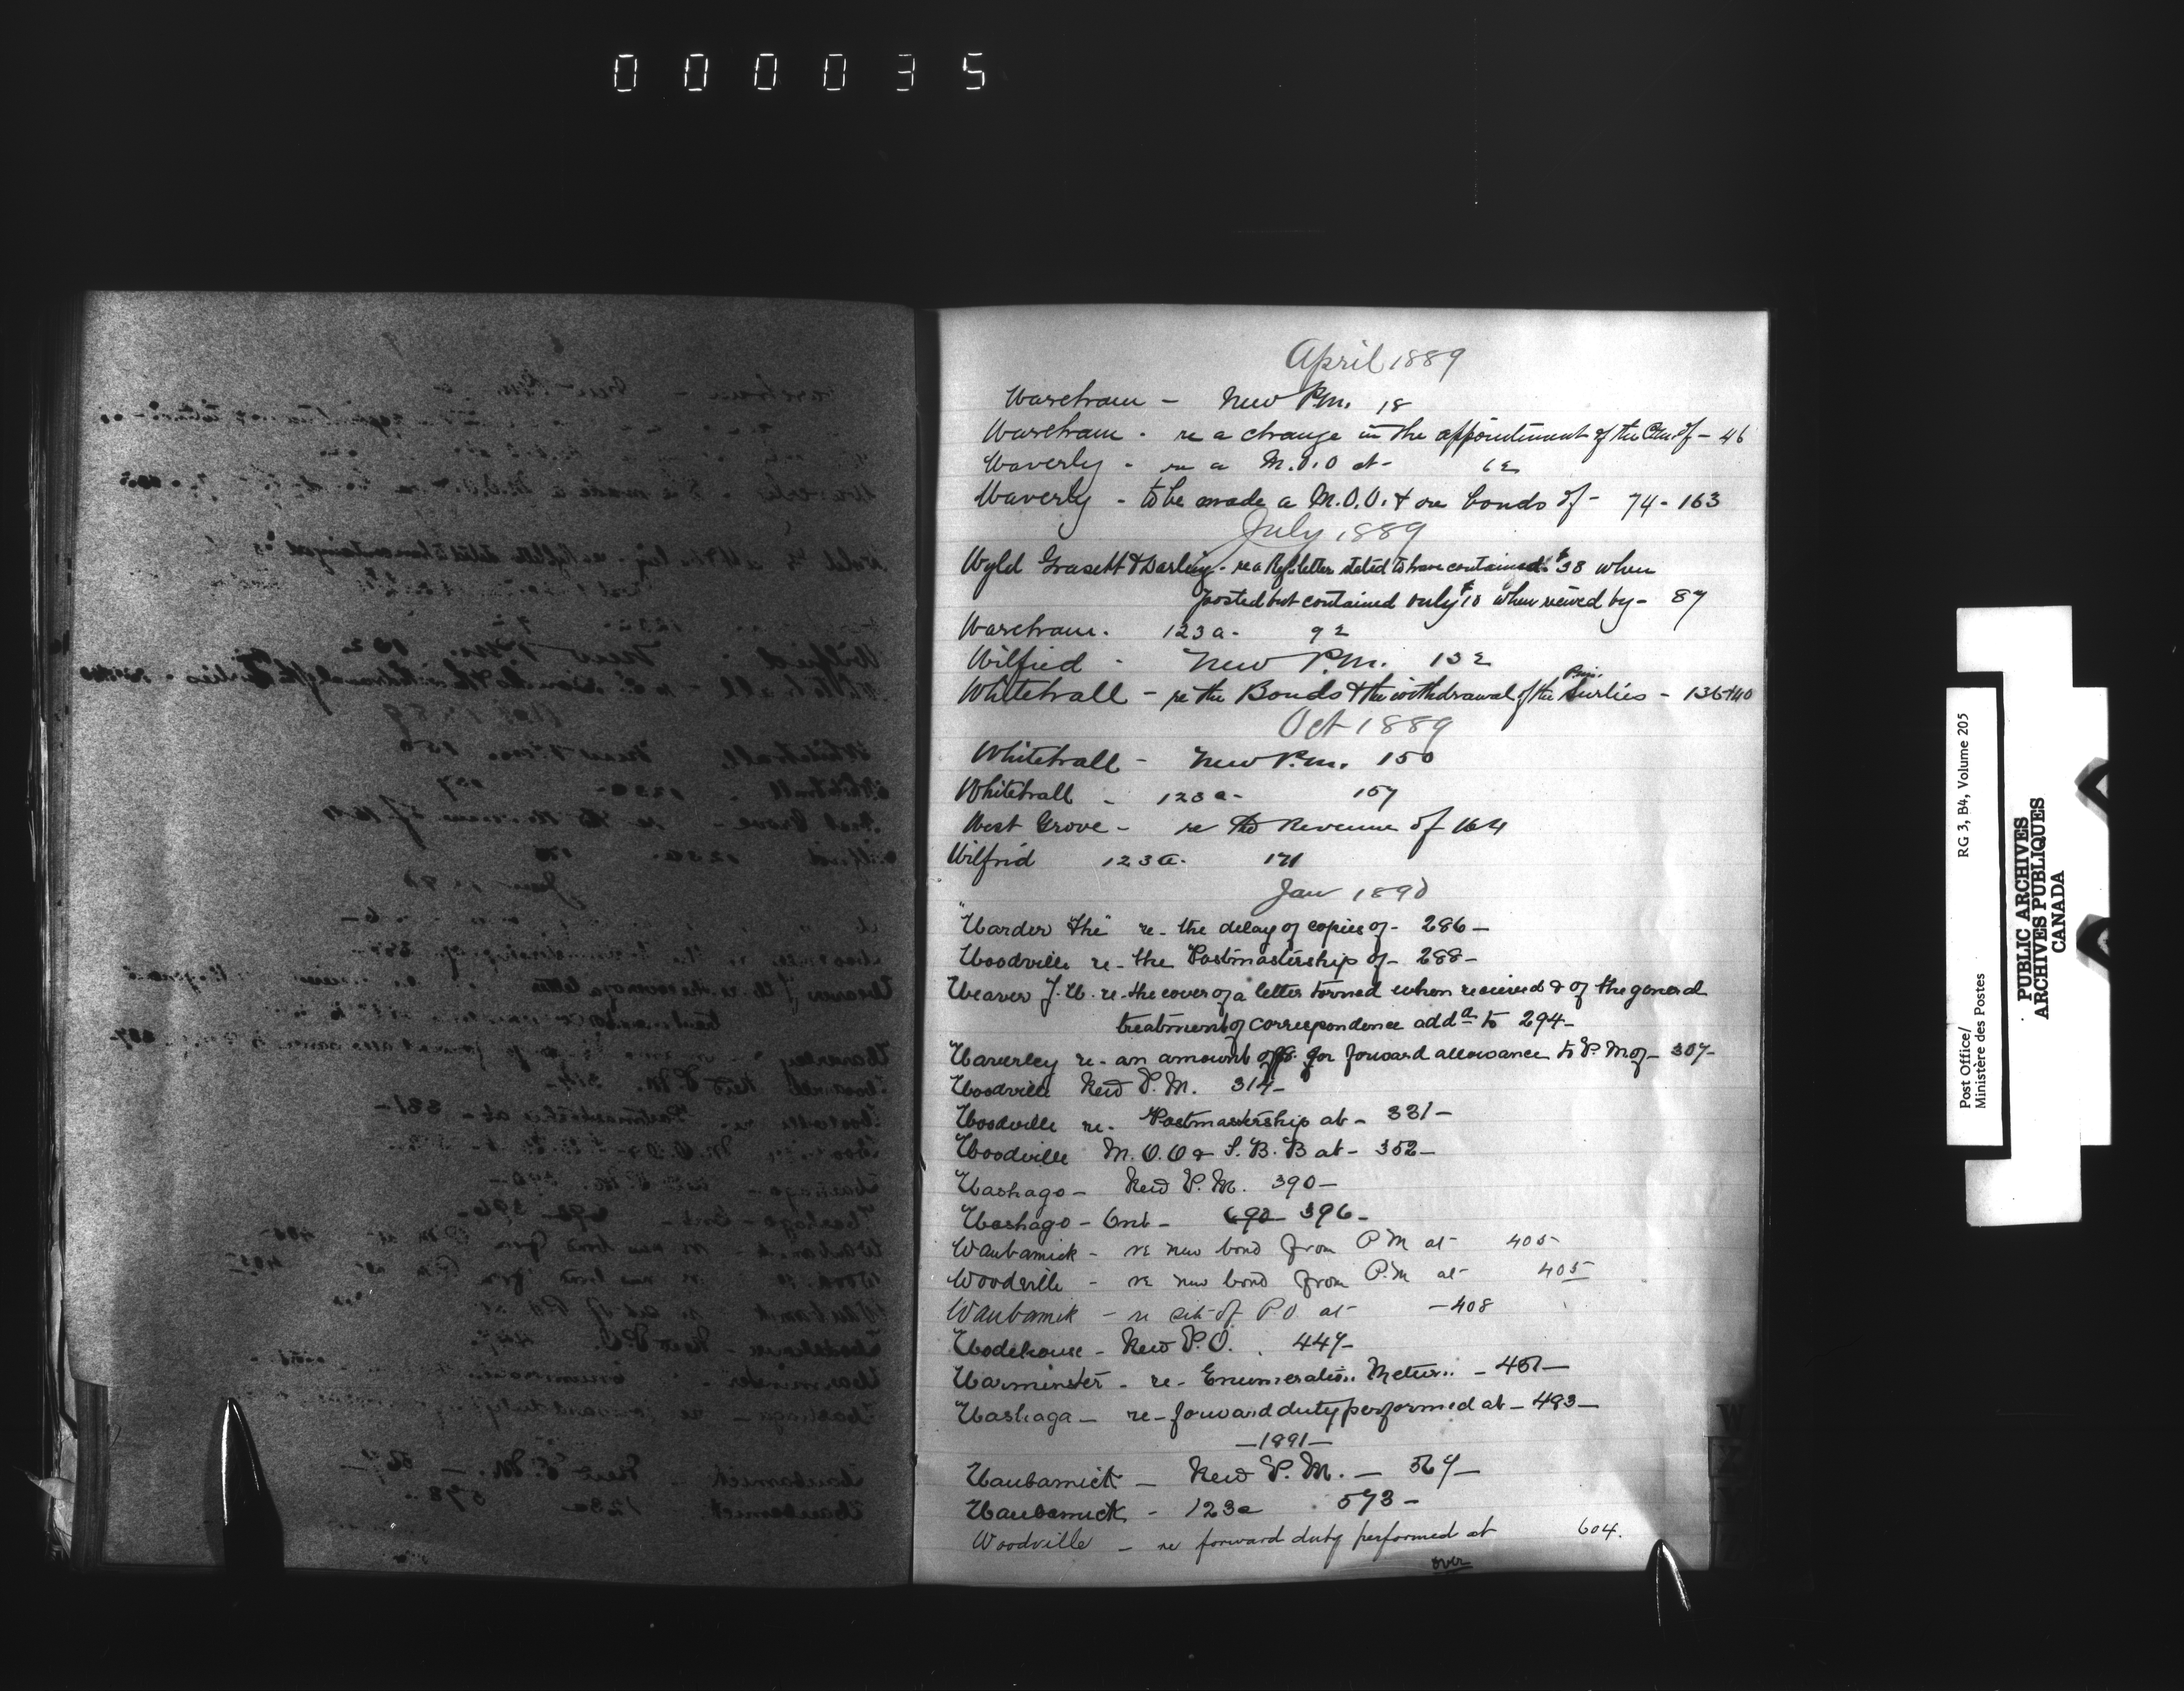 000035
April 1889
Wareham - New P.M. 18
Wareham - re a change in the appointment of the of - 46
Waverly - re a M.O.O at - 62
Waverly - to be made a M.O.O. & re bonds of - 74 - 163
July 1889
Wyld Grasett & Darling - re a Reg. letter stated to have contained $38 when
posted but contained only $10 when received by - 87
Wareham. 123a - 92
Wilfrid - New P.M. 132
Whitehall - re the Bonds & the withdrawal of the Sureties - 136+140
Oct 1889
Whitehall - New P.M. 150
Whitehall - 123a - 157
West Grove - re the Revenue of 164
Wilfrid 123a. 171
Jan 1890
"Warder The" re - the delay of copies of - 286 -
Woodville re - the Postmastership of - 288 -
Weaver J.W. re - the cover of a letter torned when received & of the general
treatment of correspondence addd to 294 -
Waverley re - an amount of $8. for forward allowance to P.M of - 307 -
Woodville New P.M. 314 -
Woodville re - Postmastership at - 331 -
Woodville M.O.O & S.B.B at - 352 -
Washago - New P.M. 390 -
Washago - Ont - 396 -
Waubamick - re new bond from P M at - 405
Woodville - re new bond from P.M at - 405
Waubamik - re est of P.O at - 408
Wodehouse - New P.O. . 447 -
Warminster - re - Enumeration Return - 457 -
Washaga - re - forward duty performed at - 483 -
- 1891 -
Waubamick - New P.M. - 567 -
Waubamick - 123a 573 -
Woodville - re forward duty performed at 604.
over
W
Z
Post Office/
Ministère des Postes
RG 3, B4, Volume 205
PUBLIC ARCHIVES
ARCHIVES PUBLIQUES
CANADA